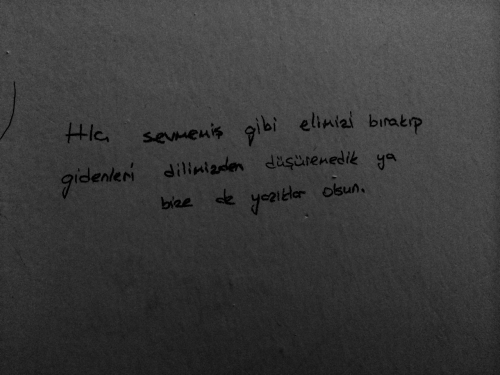 Hiç sevmemiş gibi elimizi bırakıp
gidenleri dilimizden düşüremedik ya
bize de yazıklar olsun.